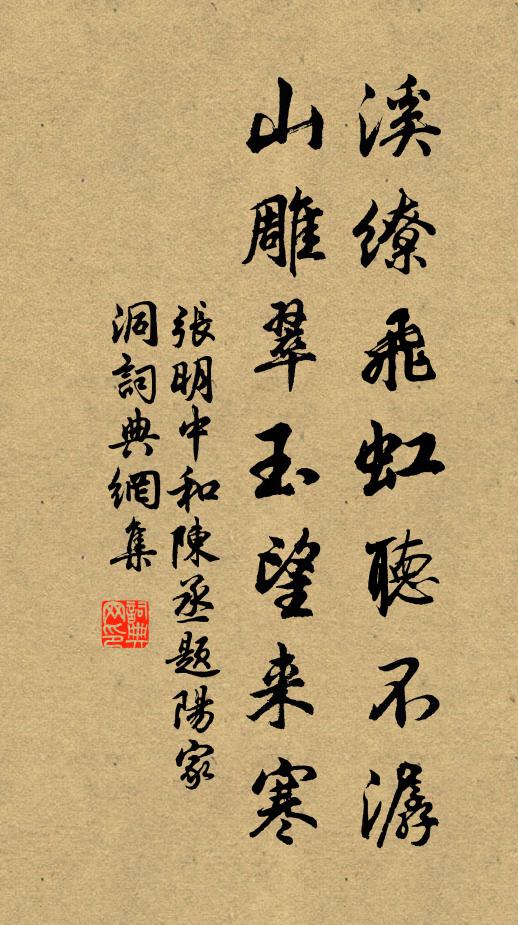 溪繚飛虹聽不潺
山雕翠玉望来寒
張明中和陳丞题陽家
洞詞典網集
詞典網印